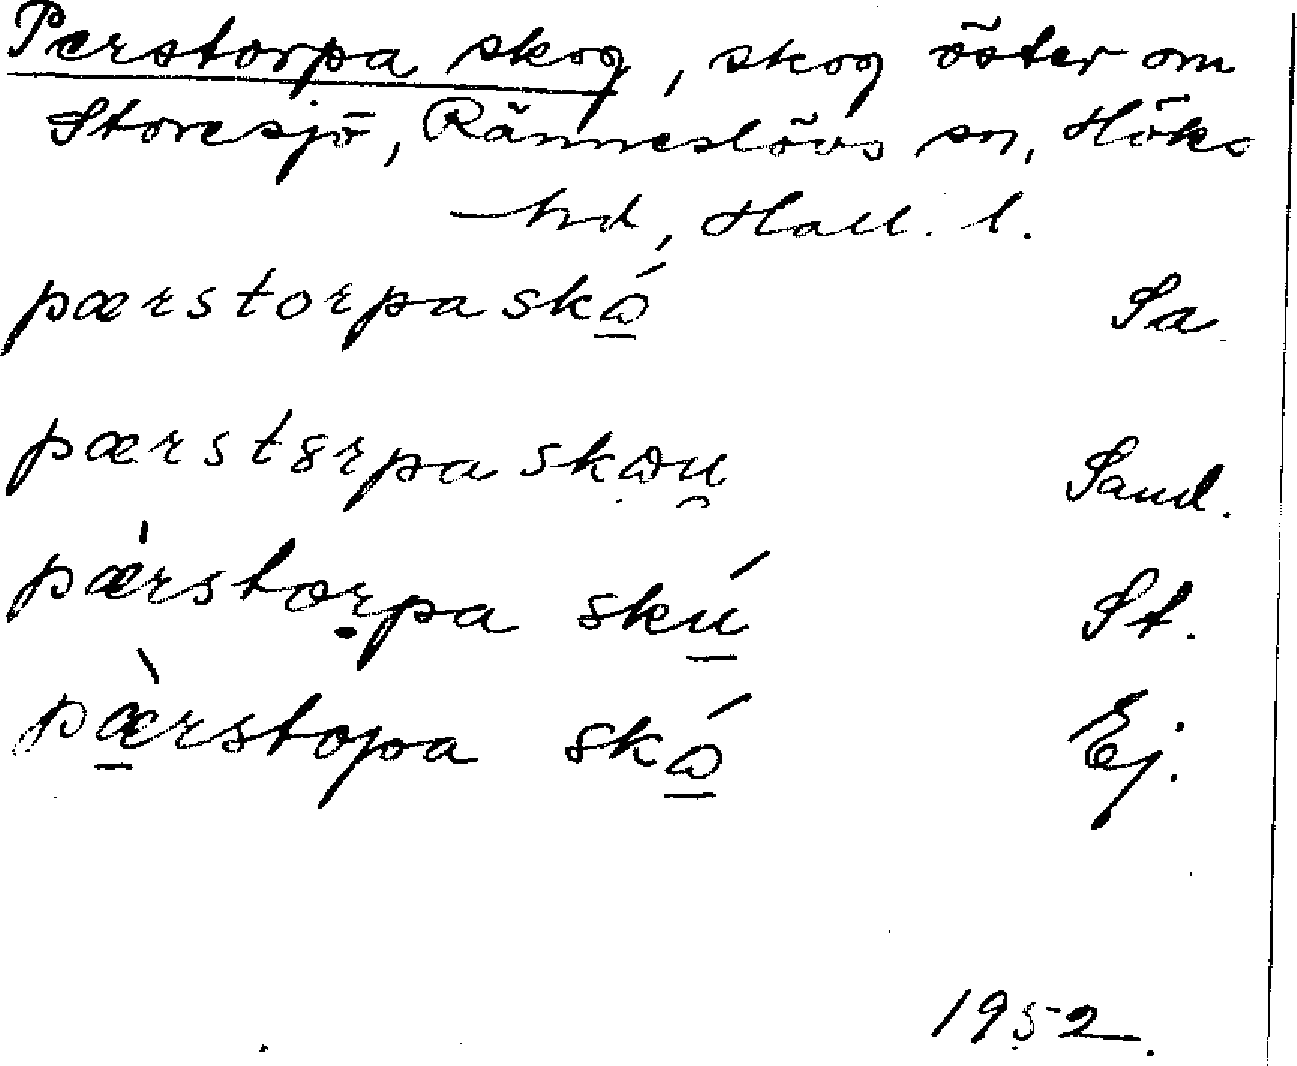 Perstorpa skog, skog öster om
Storesjö, Ränneslövs sn, Höks
hd, Hall. l.
pærstorpaskɷ́ Sa
pærstȣrpaskɷu̯ Sand.
pǽrstorp̣a skú St.
pæ̀rstopa skɷ́ Ej.
1952.